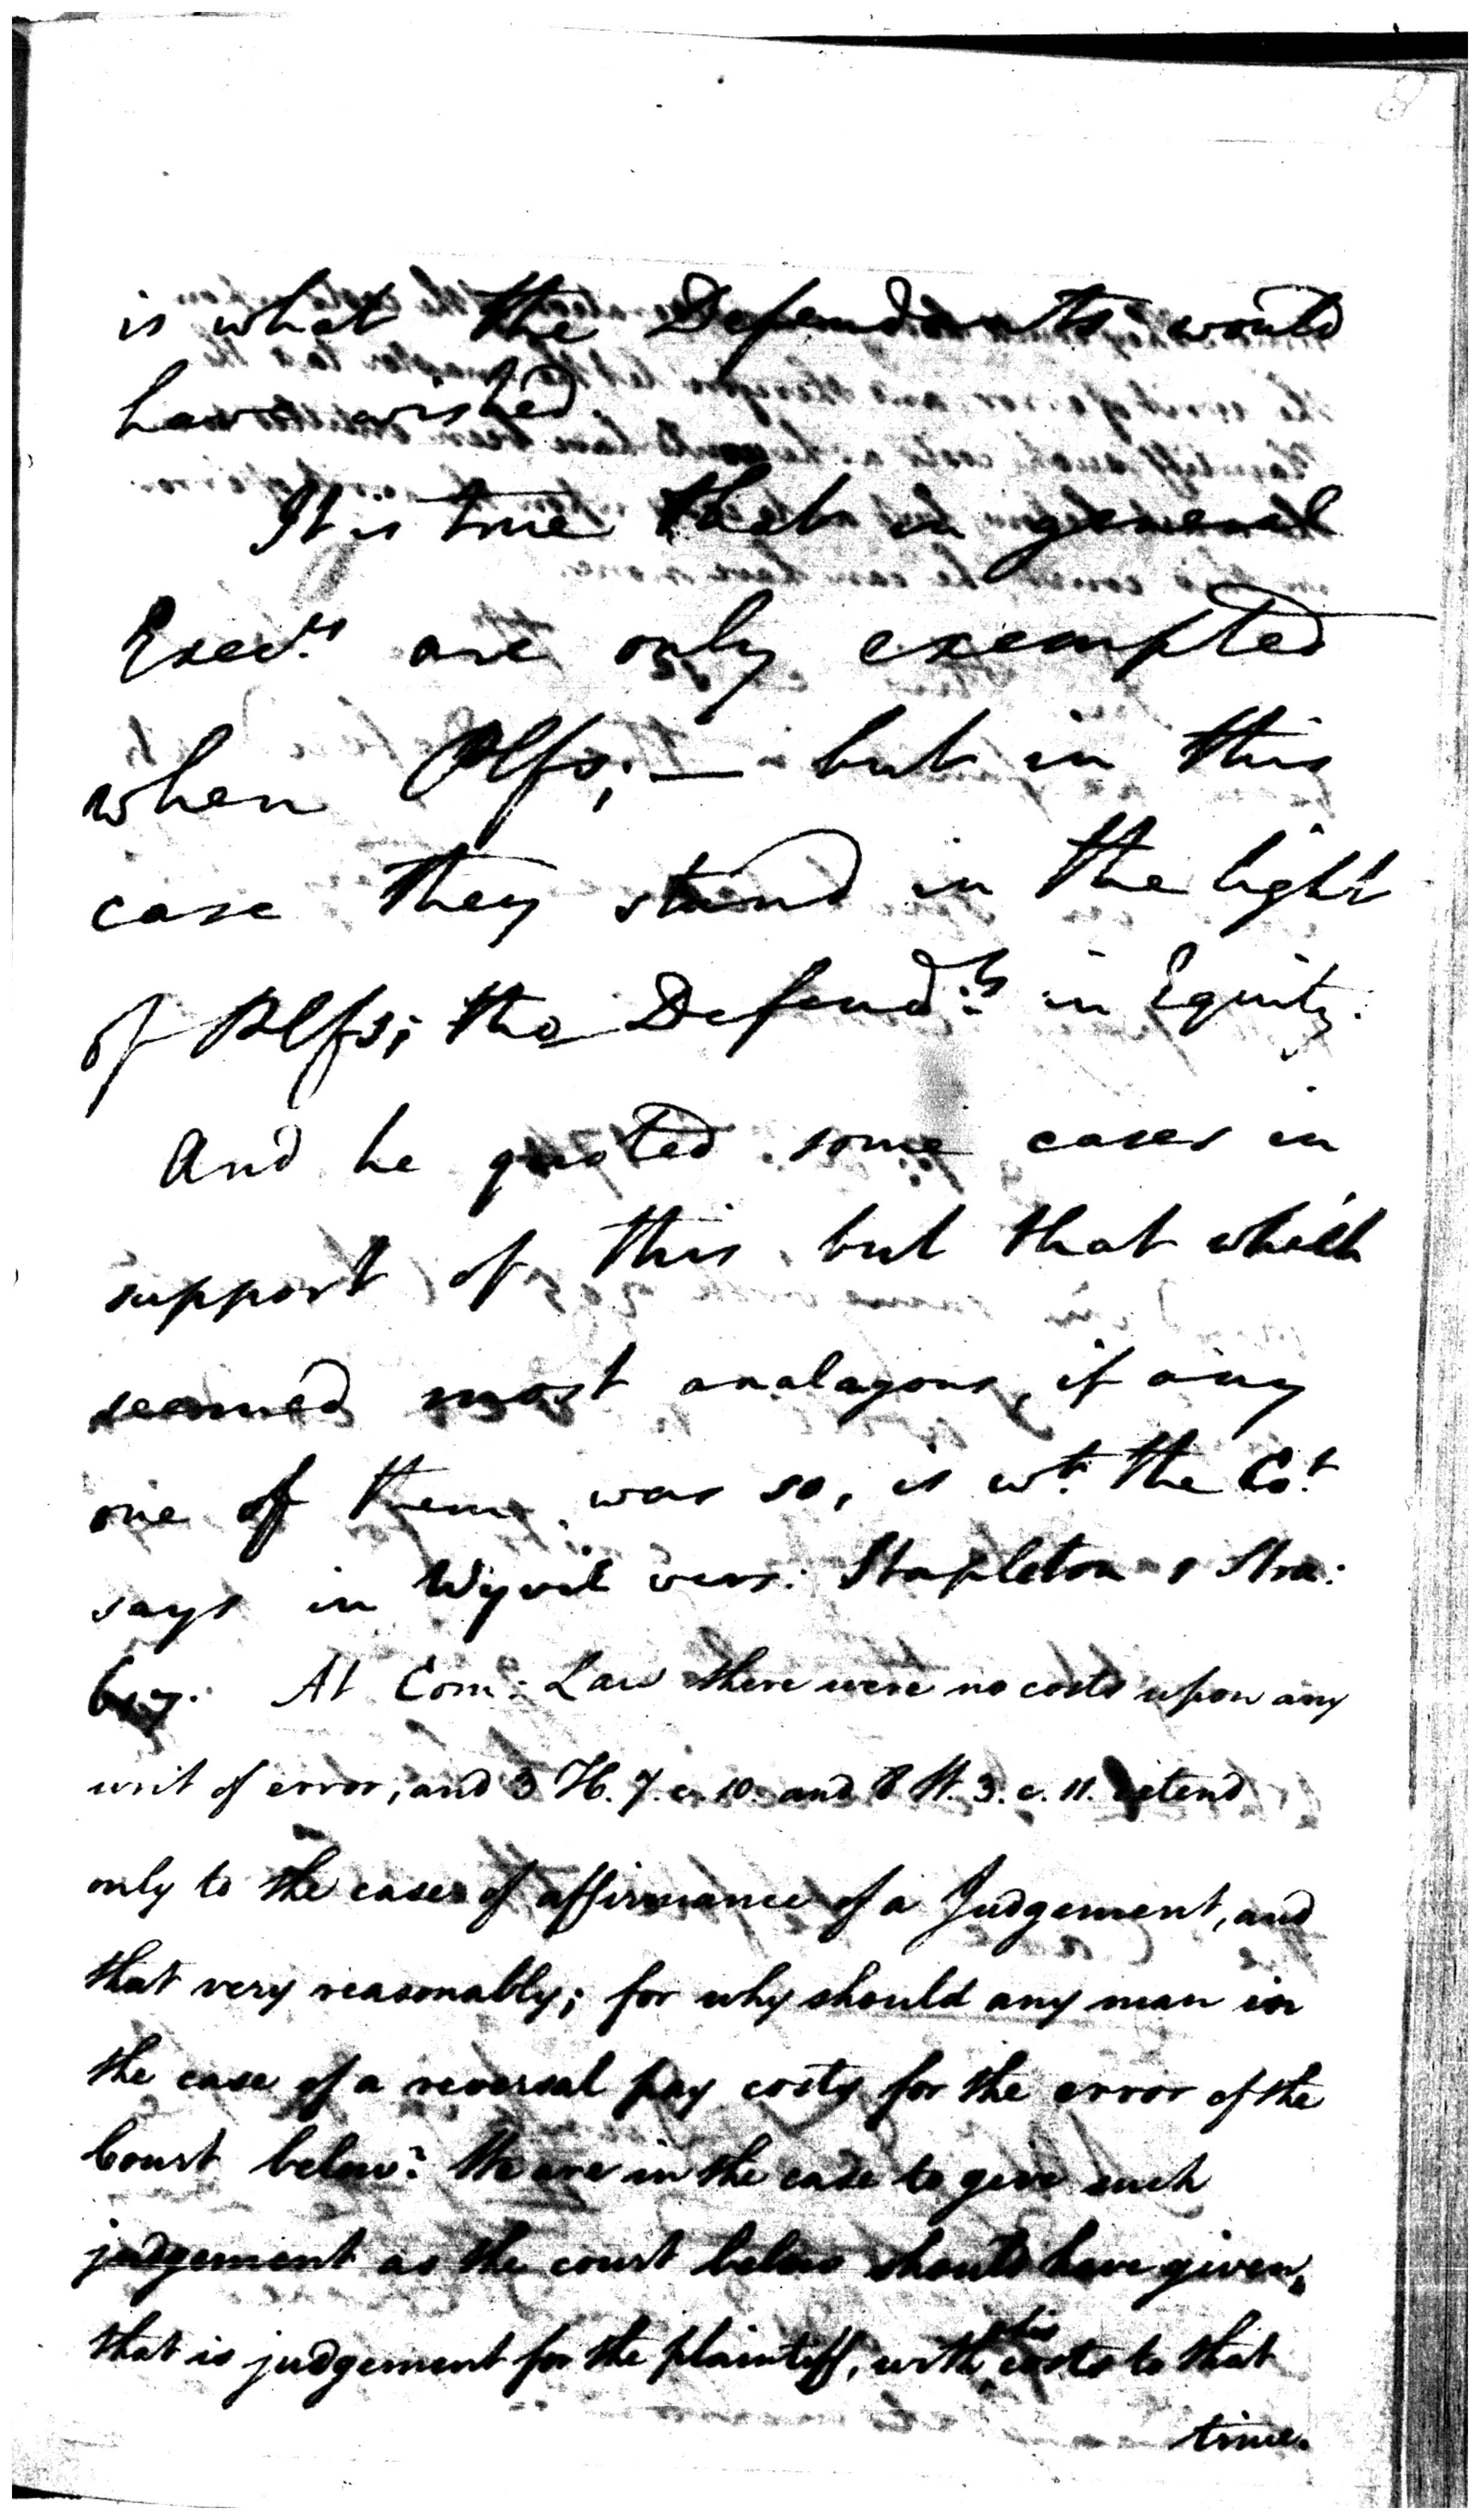 is what the Defendants would
have wished.
It is true that in general
Exec.rs are only exempted
when Plfs; — but in this
case they stand in the light
of Plfs; tho Defend.ts in Equity.
And he quoted some cases in
support of this, but that which
seemed most analagous, if any
one of them was so, is wt. the Co.t
says in Wyvil vers: Stapleton 1 Stra:
617. At Com: Law there were no costs upon any
writ of error, and 3 H. 7. c. 10. and 8 W. 3. c. 11. extend
only to the cases of affirmance of a Judgement, and
that very reasonably; for why should any man in
the case of a reversal pay costs for the error of the
Court below? We are in the case to give such
judgement as the court below should have given,
that is judgement for the plaintiff, with his costs to that
time.